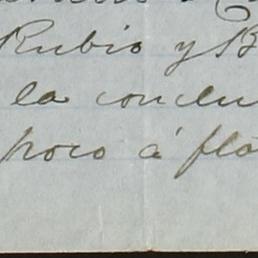 Rubio y B
la conclu
poco á flo